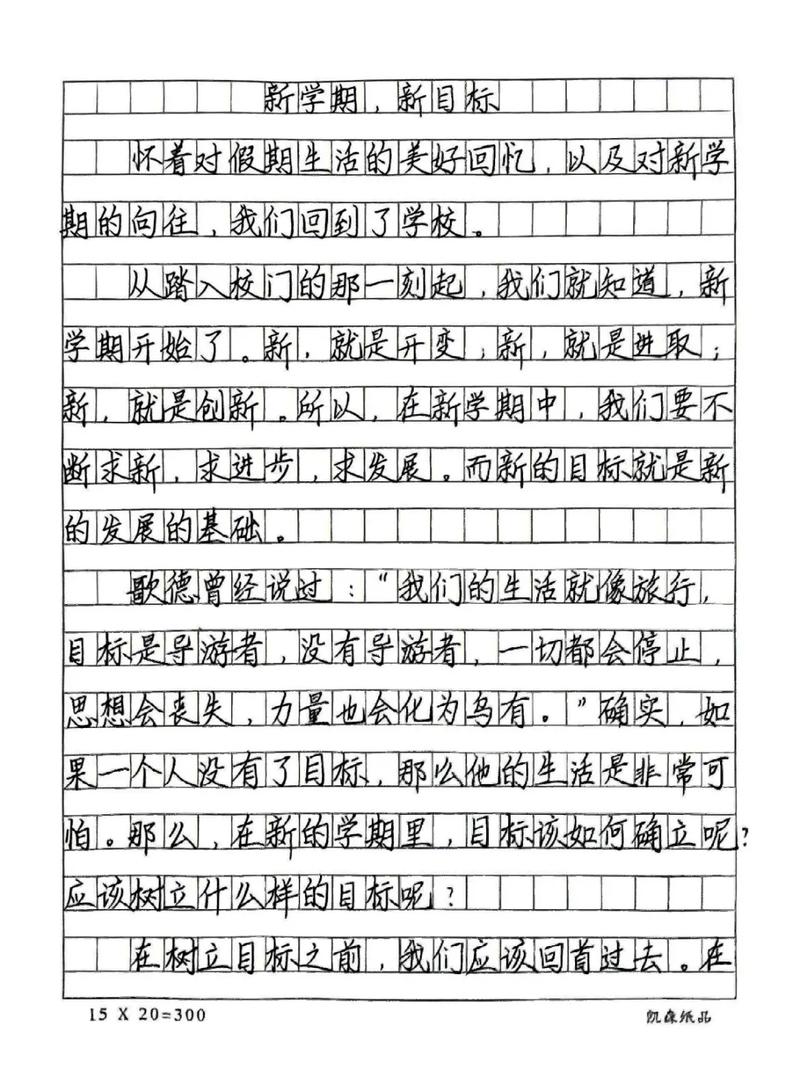 新学期，新目标
怀着对假期生活的美好回忆，以及对新学
期的向往，我们回到了学校。
从踏入校门的那一刻起，我们就知道，新
学期开始了。新，就是开变；新，就是进取；
新，就是创新。所以，在新学期中，我们要不
断求新，求进步，求发展。而新的目标就是新
的发展的基础。
歌德曾经说过：“我们的生活就像旅行，
目标是导游者，没有导游者，一切都会停止，
思想会丧失，力量也会化为乌有。”确实，如
果一个人没有了目标，那么他的生活是非常可
怕。那么，在新的学期里，目标该如何确立呢？
应该树立什么样的目标呢？
在树立目标之前，我们应该回首过去。在
15 X 20=300
凯森纸品